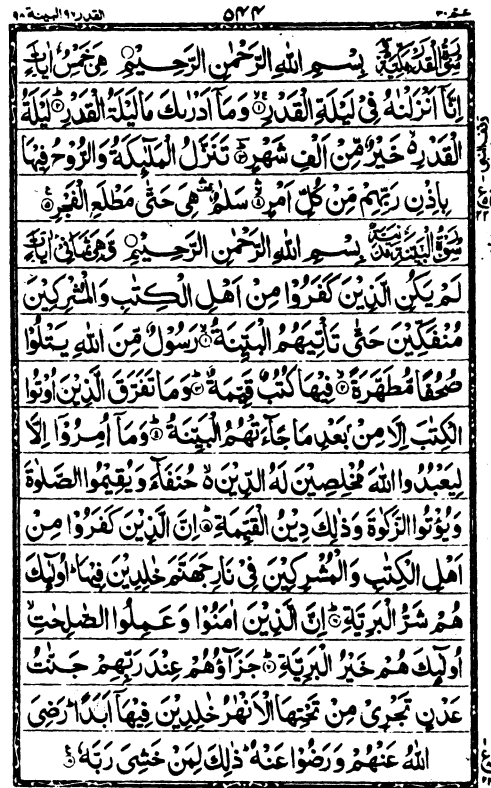 عم ٣٠ ٥٤٤ القدر ٩٧ البينة ٩٨
سورة القدر مكية بِسْمِ اللهِ الرَّحْمٰنِ الرَّحِيْمِ هي خمس آيات
اِنَّاۤ اَنْزَلْنٰهُ فِىْ لَيْلَةِ الْقَدْرِ ۝١ وَمَاۤ اَدْرٰىكَ مَا لَيْلَةُ الْقَدْرِ ۝٢ لَيْلَةُ
الْقَدْرِ خَيْرٌ مِّنْ اَلْفِ شَهْرٍ ۝٣ تَنَزَّلُ الْمَلٰٓئِكَةُ وَالرُّوْحُ فِيْهَا
بِاِذْنِ رَبِّهِمْ مِّنْ كُلِّ اَمْرٍ ۝٤ سَلٰمٌ هِىَ حَتّٰى مَطْلَعِ الْفَجْرِ ۝٥
سورة البينة بِسْمِ اللهِ الرَّحْمٰنِ الرَّحِيْمِ وهي ثماني آيات
لَمْ يَكُنِ الَّذِيْنَ كَفَرُوْا مِنْ اَهْلِ الْكِتٰبِ وَالْمُشْرِكِيْنَ
مُنْفَكِّيْنَ حَتّٰى تَاْتِيَهُمُ الْبَيِّنَةُ ۝١ رَسُوْلٌ مِّنَ اللهِ يَتْلُوْا
صُحُفًا مُّطَهَّرَةً ۝٢ فِيْهَا كُتُبٌ قَيِّمَةٌ ۝٣ وَمَا تَفَرَّقَ الَّذِيْنَ اُوْتُوا
الْكِتٰبَ اِلَّا مِنْۢ بَعْدِ مَا جَآءَتْهُمُ الْبَيِّنَةُ ۝٤ وَمَاۤ اُمِرُوْۤا اِلَّا
لِيَعْبُدُوا اللهَ مُخْلِصِيْنَ لَهُ الدِّيْنَ حُنَفَآءَ وَيُقِيْمُوا الصَّلٰوةَ
وَيُؤْتُوا الزَّكٰوةَ وَذٰلِكَ دِيْنُ الْقَيِّمَةِ ۝٥ اِنَّ الَّذِيْنَ كَفَرُوْا مِنْ
اَهْلِ الْكِتٰبِ وَالْمُشْرِكِيْنَ فِىْ نَارِ جَهَنَّمَ خٰلِدِيْنَ فِيْهَا اُولٰٓئِكَ
هُمْ شَرُّ الْبَرِيَّةِ ۝٦ اِنَّ الَّذِيْنَ اٰمَنُوْا وَعَمِلُوا الصّٰلِحٰتِ
اُولٰٓئِكَ هُمْ خَيْرُ الْبَرِيَّةِ ۝٧ جَزَآؤُهُمْ عِنْدَ رَبِّهِمْ جَنّٰتُ
عَدْنٍ تَجْرِىْ مِنْ تَحْتِهَا الْاَنْهٰرُ خٰلِدِيْنَ فِيْهَاۤ اَبَدًا رَضِىَ
اللهُ عَنْهُمْ وَرَضُوْا عَنْهُ ذٰلِكَ لِمَنْ خَشِىَ رَبَّهٗ ۝٨